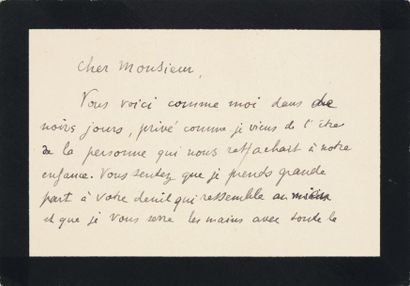 Cher Monsieur,
Vous voici comme moi dans de
noirs jours, privé comme je viens de l'être
de la personne qui nous rattachait à notre
enfance. Vous sentez que je prends grande
part à votre deuil qui ressemble au mien
et que je vous serre les mains avec toute la